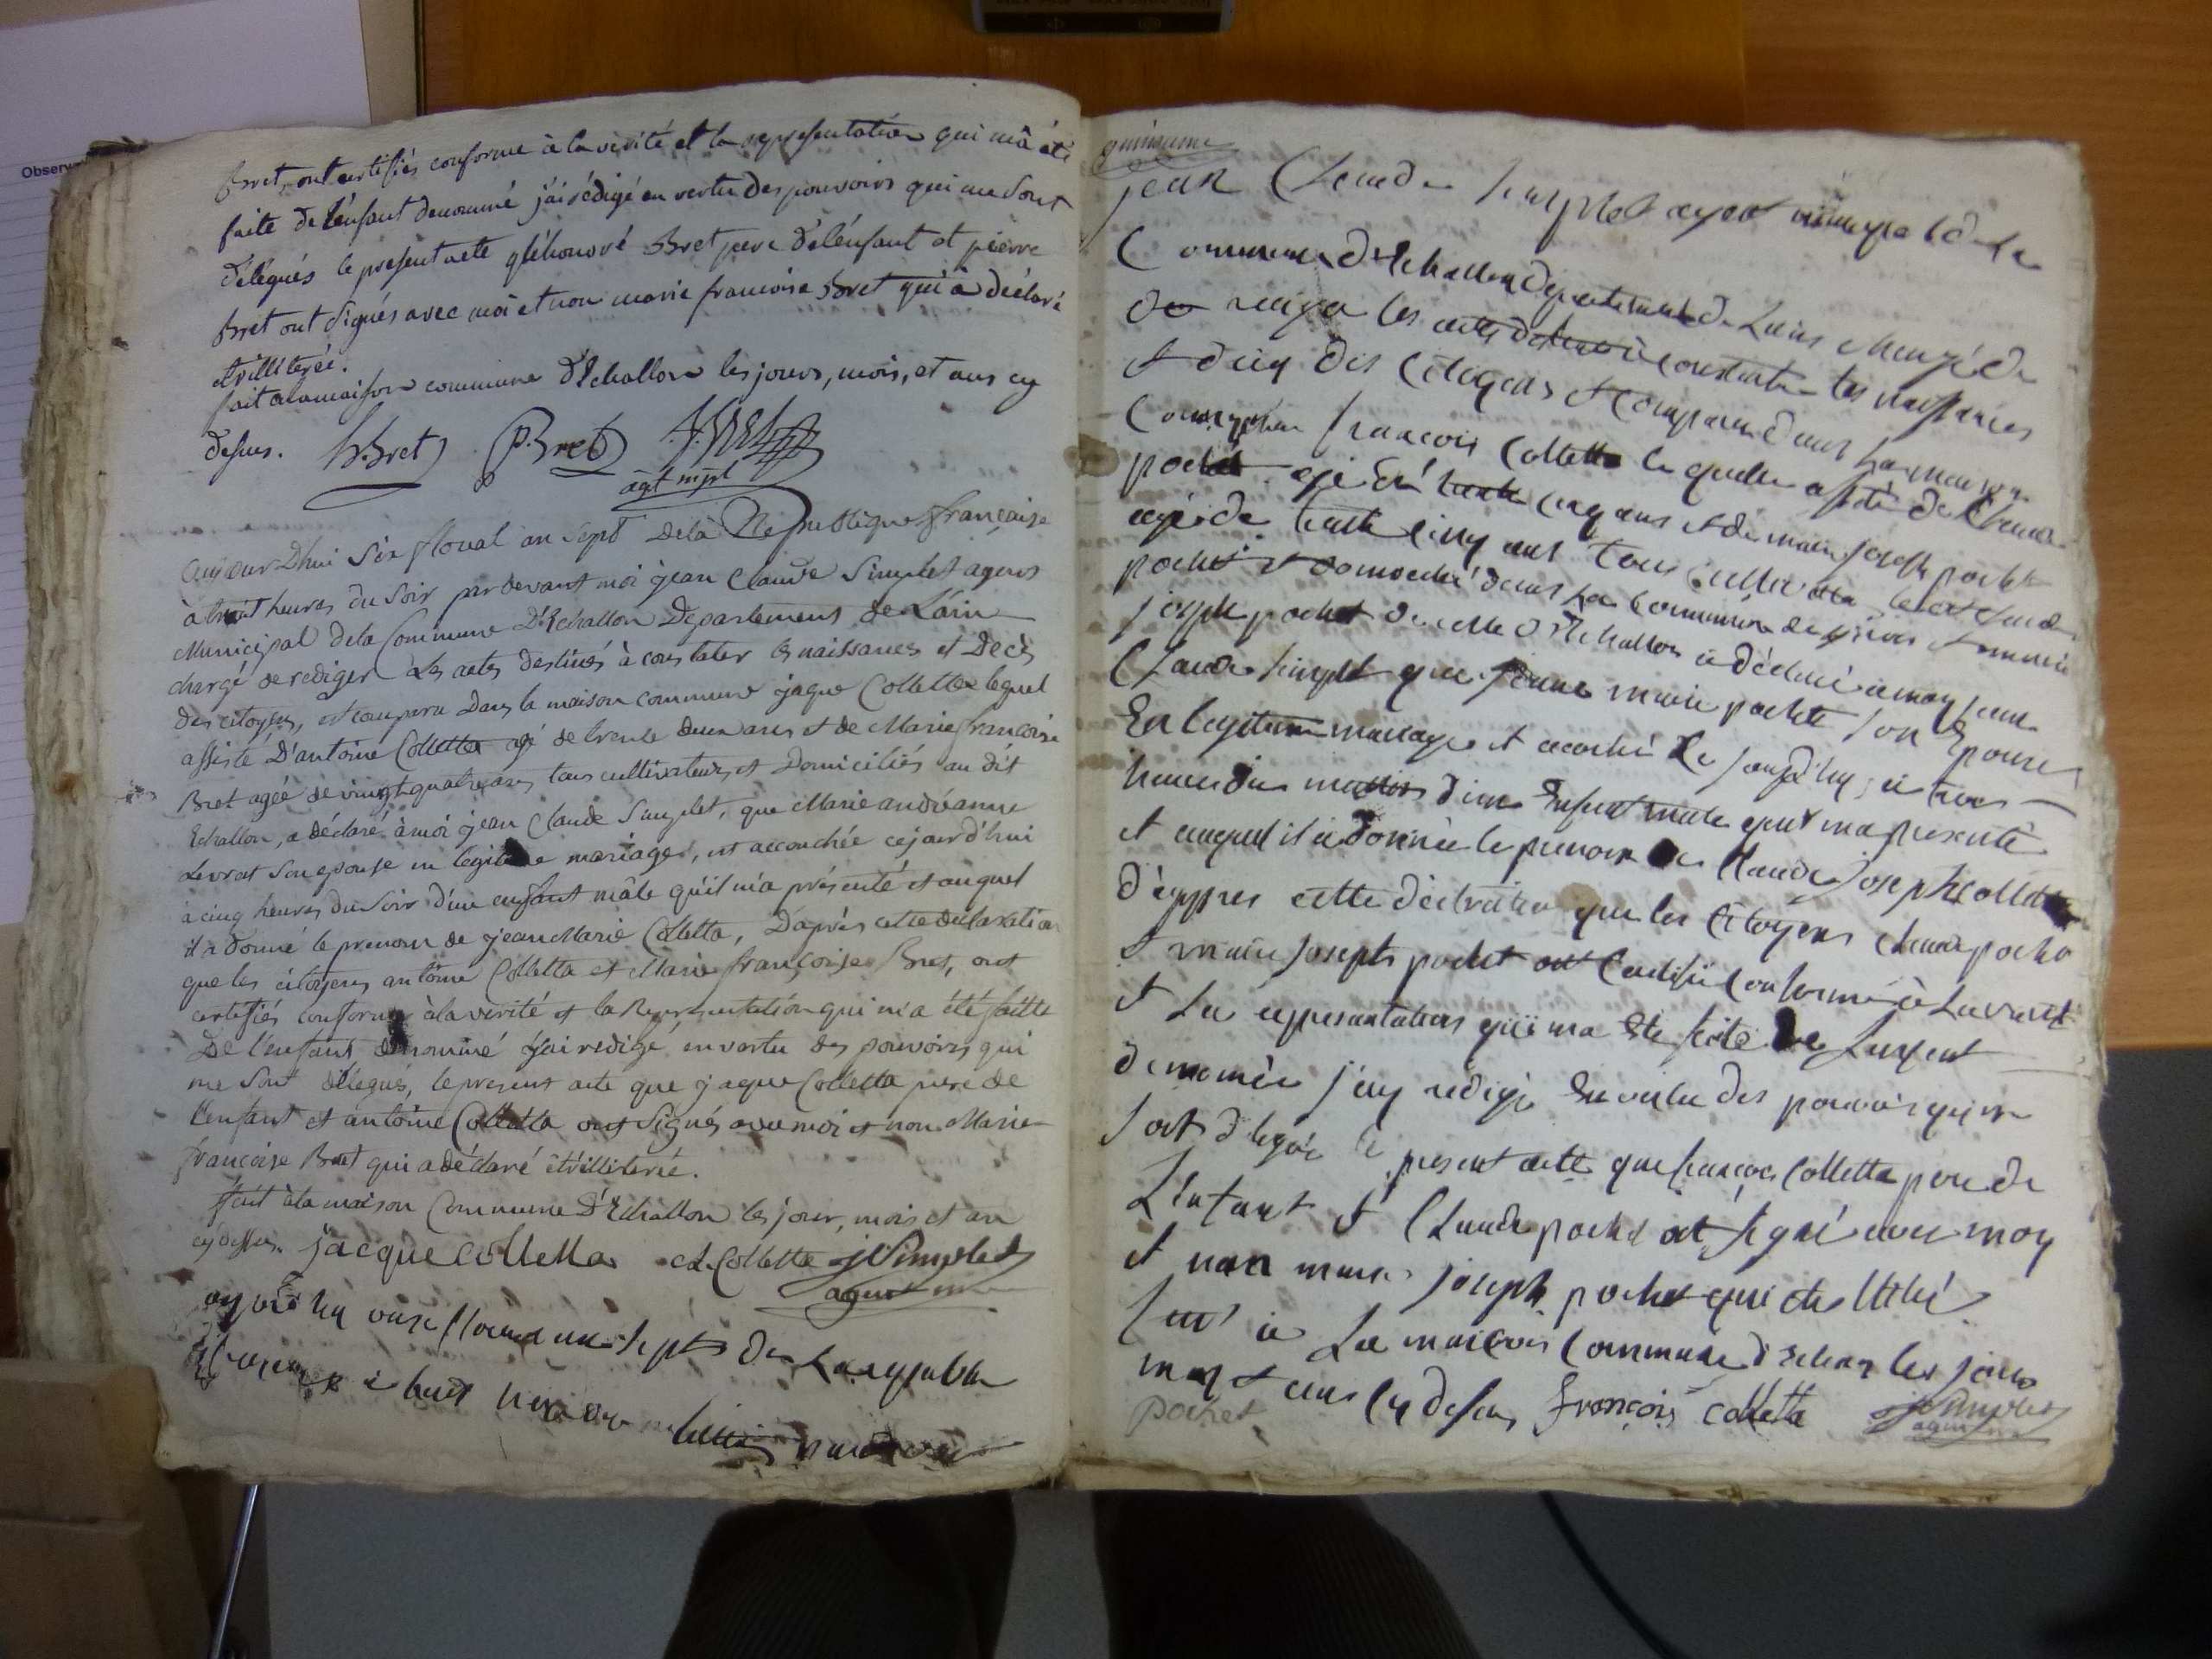 Observ
Bret, ont certifiés conforme à la vérité et la représentation qui m'a été
faite de l'enfant denommé j'ai rédigé en vertu des pouvoirs qui me sont
délégués le present acte q'léhonoré Bret pere de l'enfant et pierre
Bret ont signés avec moi et non marie francoise Bret qui a déclaré
etr'illiterée.
fait a la maison commune d'Echallon les jours, mois, et ans cy
desus. h. Bret P. Bret J. BRET
agt mpl
aujourd'hui six floréal an sept de la Republique française
à huit heures du soir par devant moi jean Claude Simplet agent
Municipal de la Commune D'Echallon Departement de L'ain
chargé de rediger les actes destinés à constater les naissances et Décès
des citoyens, est comparu Dans la maison commune jaque Colletta lequel
assisté D'antoine Colletta agé de trente deux ans et de Marie françoise
Bret agée de vingt quatre ans, tous cultivateurs et Domiciliés au dit
Echallon, a déclaré à moi jean Claude Simplet, que Marie andréanne
Levrat son epouse en legitime mariage, est accouchée cejourd'hui
à cinq heures du soir d'un enfant mâle qu'il m'a présenté et auquel
il a donné le prenom de jean Marie Colletta, D'après cette déclaration
que les citoyens antoine Colletta et Marie françoise Bret, ont
certifiés conforme à la vérité et la Représentation qui m'a été faitte
De l'enfant dénommé j'ai redigé en vertu des pouvoirs qui
me sont délégués, le present acte que jaque Colletta pere de
l'enfant et antoine Colletta ont signés avec moi et non Marie
françoise Bret qui a déclaré êtr'illiterée.
fait à la maison Commune d'Echallon les jour, mois et an
cy dessus. jacque colletta a Colletta jC Simplet
agent
onze an sept de La republica
a huit heure du
jean Claude Simplet agent municipal de la
Commune d'Echallon departement de Lains charge de
de rediger les actes destine a constater les naissances
et deces des Citoyens et Comparu dans La maison
Commune francois Colletta le quelle assisté de Claude
pochet age de trente cinq ans et de marie joseph pochet
agé de trente cinq ans tous cultivateur
pochet et domicilié dans La Commune de et marie
joseph pochet de celle d'Echallon a déclaré a moy jean
Claude Simplet que marie pochet son Epouse
En legitime mariage et acouché Ce jourd'huy a trois
heure du mattin d'un Enfant male qui ma presenté
et auquel il a donnée le prenom de Claude Joseph Colletta
d'appres cette déclration que les Citoyens claude pochet
et marie joseph pochet ont Certifié Conforme a La verité
et La representation qui ma Ete faite de Lenfent
denomée j'ay redigé En vertu des pouvoir qui me
sont délégué le present acte que francois Colletta pere de
L'enfant et Claude pochet ont signé avec moy
et non marie joseph pochet qui et illitéré
fait a La maison Commune d'Echalon les jour
moy et ans Cy desus françois colletta jC Simplet
pochet agent